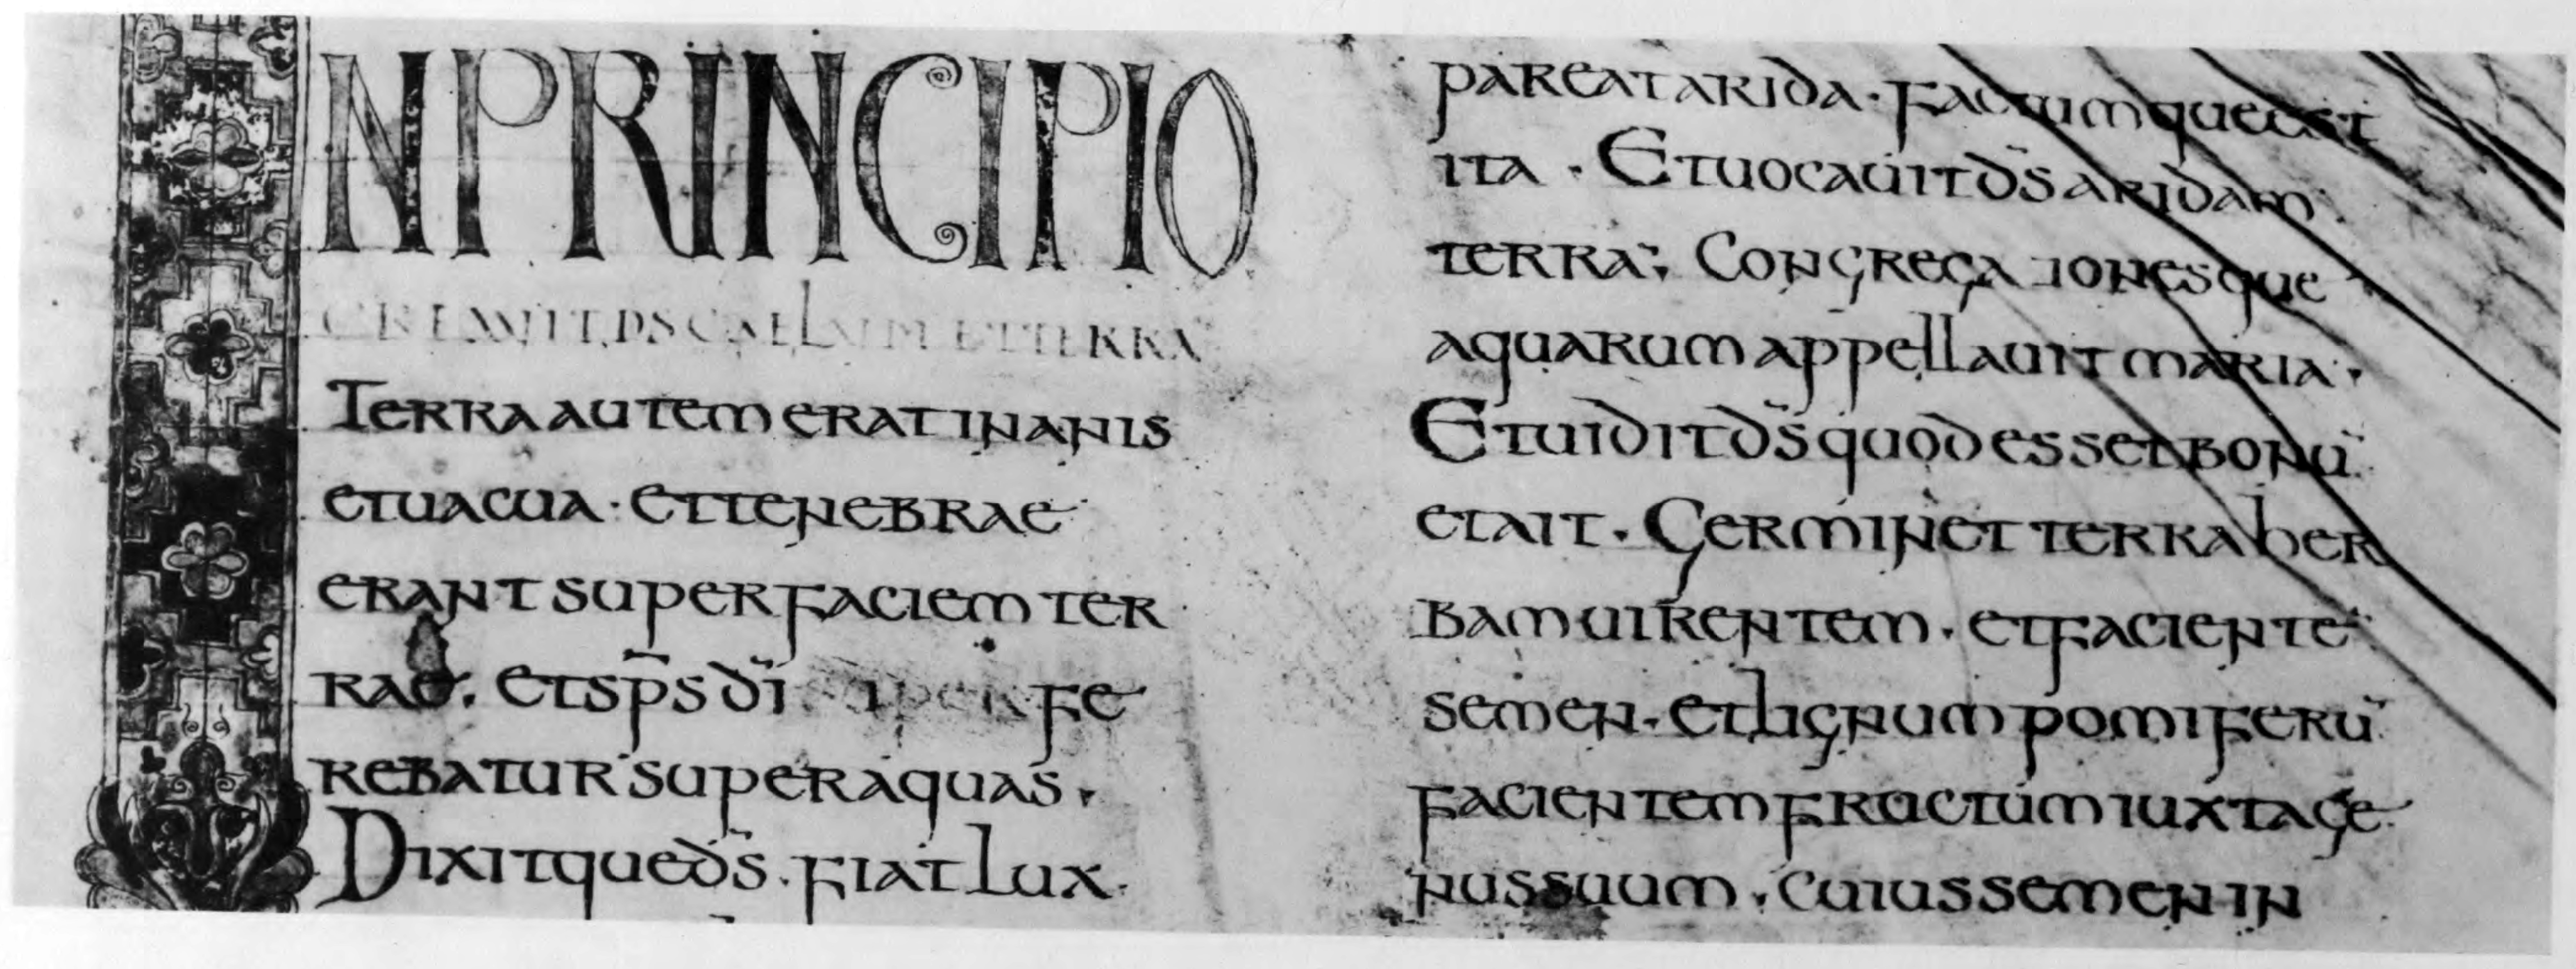 INPRINCIPIO
CREAVIT DS CAELUM ET TERRĀ
TERRA AUTEM ERAT INANIS
ET UACUA · ET TENEBRAE
ERANT SUPER FACIEM TER
RAE. ET SPS DI SUPER FE
REBATUR SUPER AQUAS.
DIXITQUE DS. FIAT LUX.
PAREAT ARIDA. FACTUMQUE EST
ITA. ET UOCAUIT DS ARIDAM
TERRĀ; CONGREGATIONESQUE
AQUARUM APPELLAUIT MARIA.
ET UIDIT DS QUOD ESSET BONŪ
ET AIT. GERMINET TERRA HER
BAM UIRENTEM. ET FACIENTĒ
SEMEN. ET LIGNUM POMIFERŪ
FACIENTEM FRUCTUM IUXTA GE
NUS SUUM. CUIUS SEMEN IN